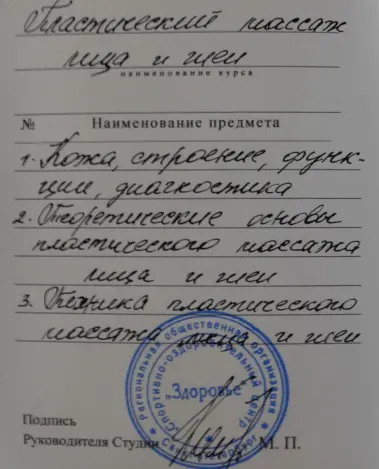 Пластический массаж
лица и шеи
наименование курса
№ Наименование предмета
1. Кожа, строение, функ-
ции, диагностика
2. Теоретические основы
пластического массажа
лица и шеи
3. Техника пластического
массажа лица и шеи
Региональная общественная организация
Спортивно-оздоровительный центр
"Здоровье"
Подпись
Руководителя Студии
М. П.